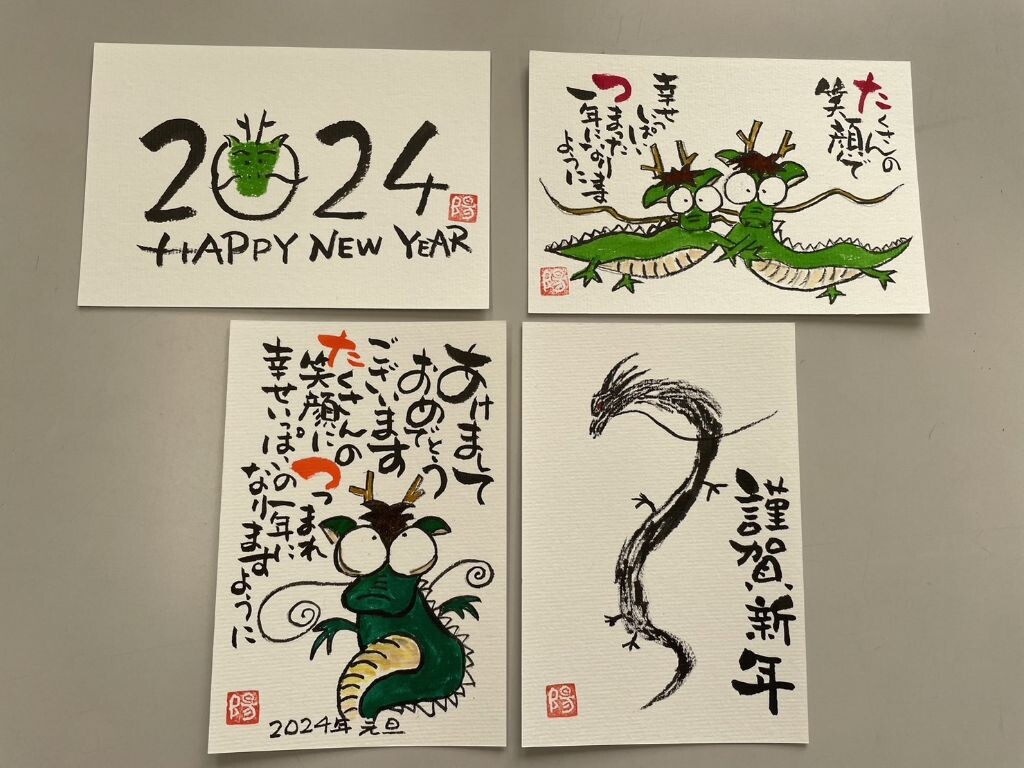 2024
HAPPY NEW YEAR
陽
たくさんの
笑顔で
幸せっ
しぱい
つまった
一年になります
ように
陽
あけまして
おめでとう
ございます
たくさんの
笑顔に
つつまれ
幸せいっぱいの一年に
なりますように
2024年 元旦
陽
謹賀新年
陽